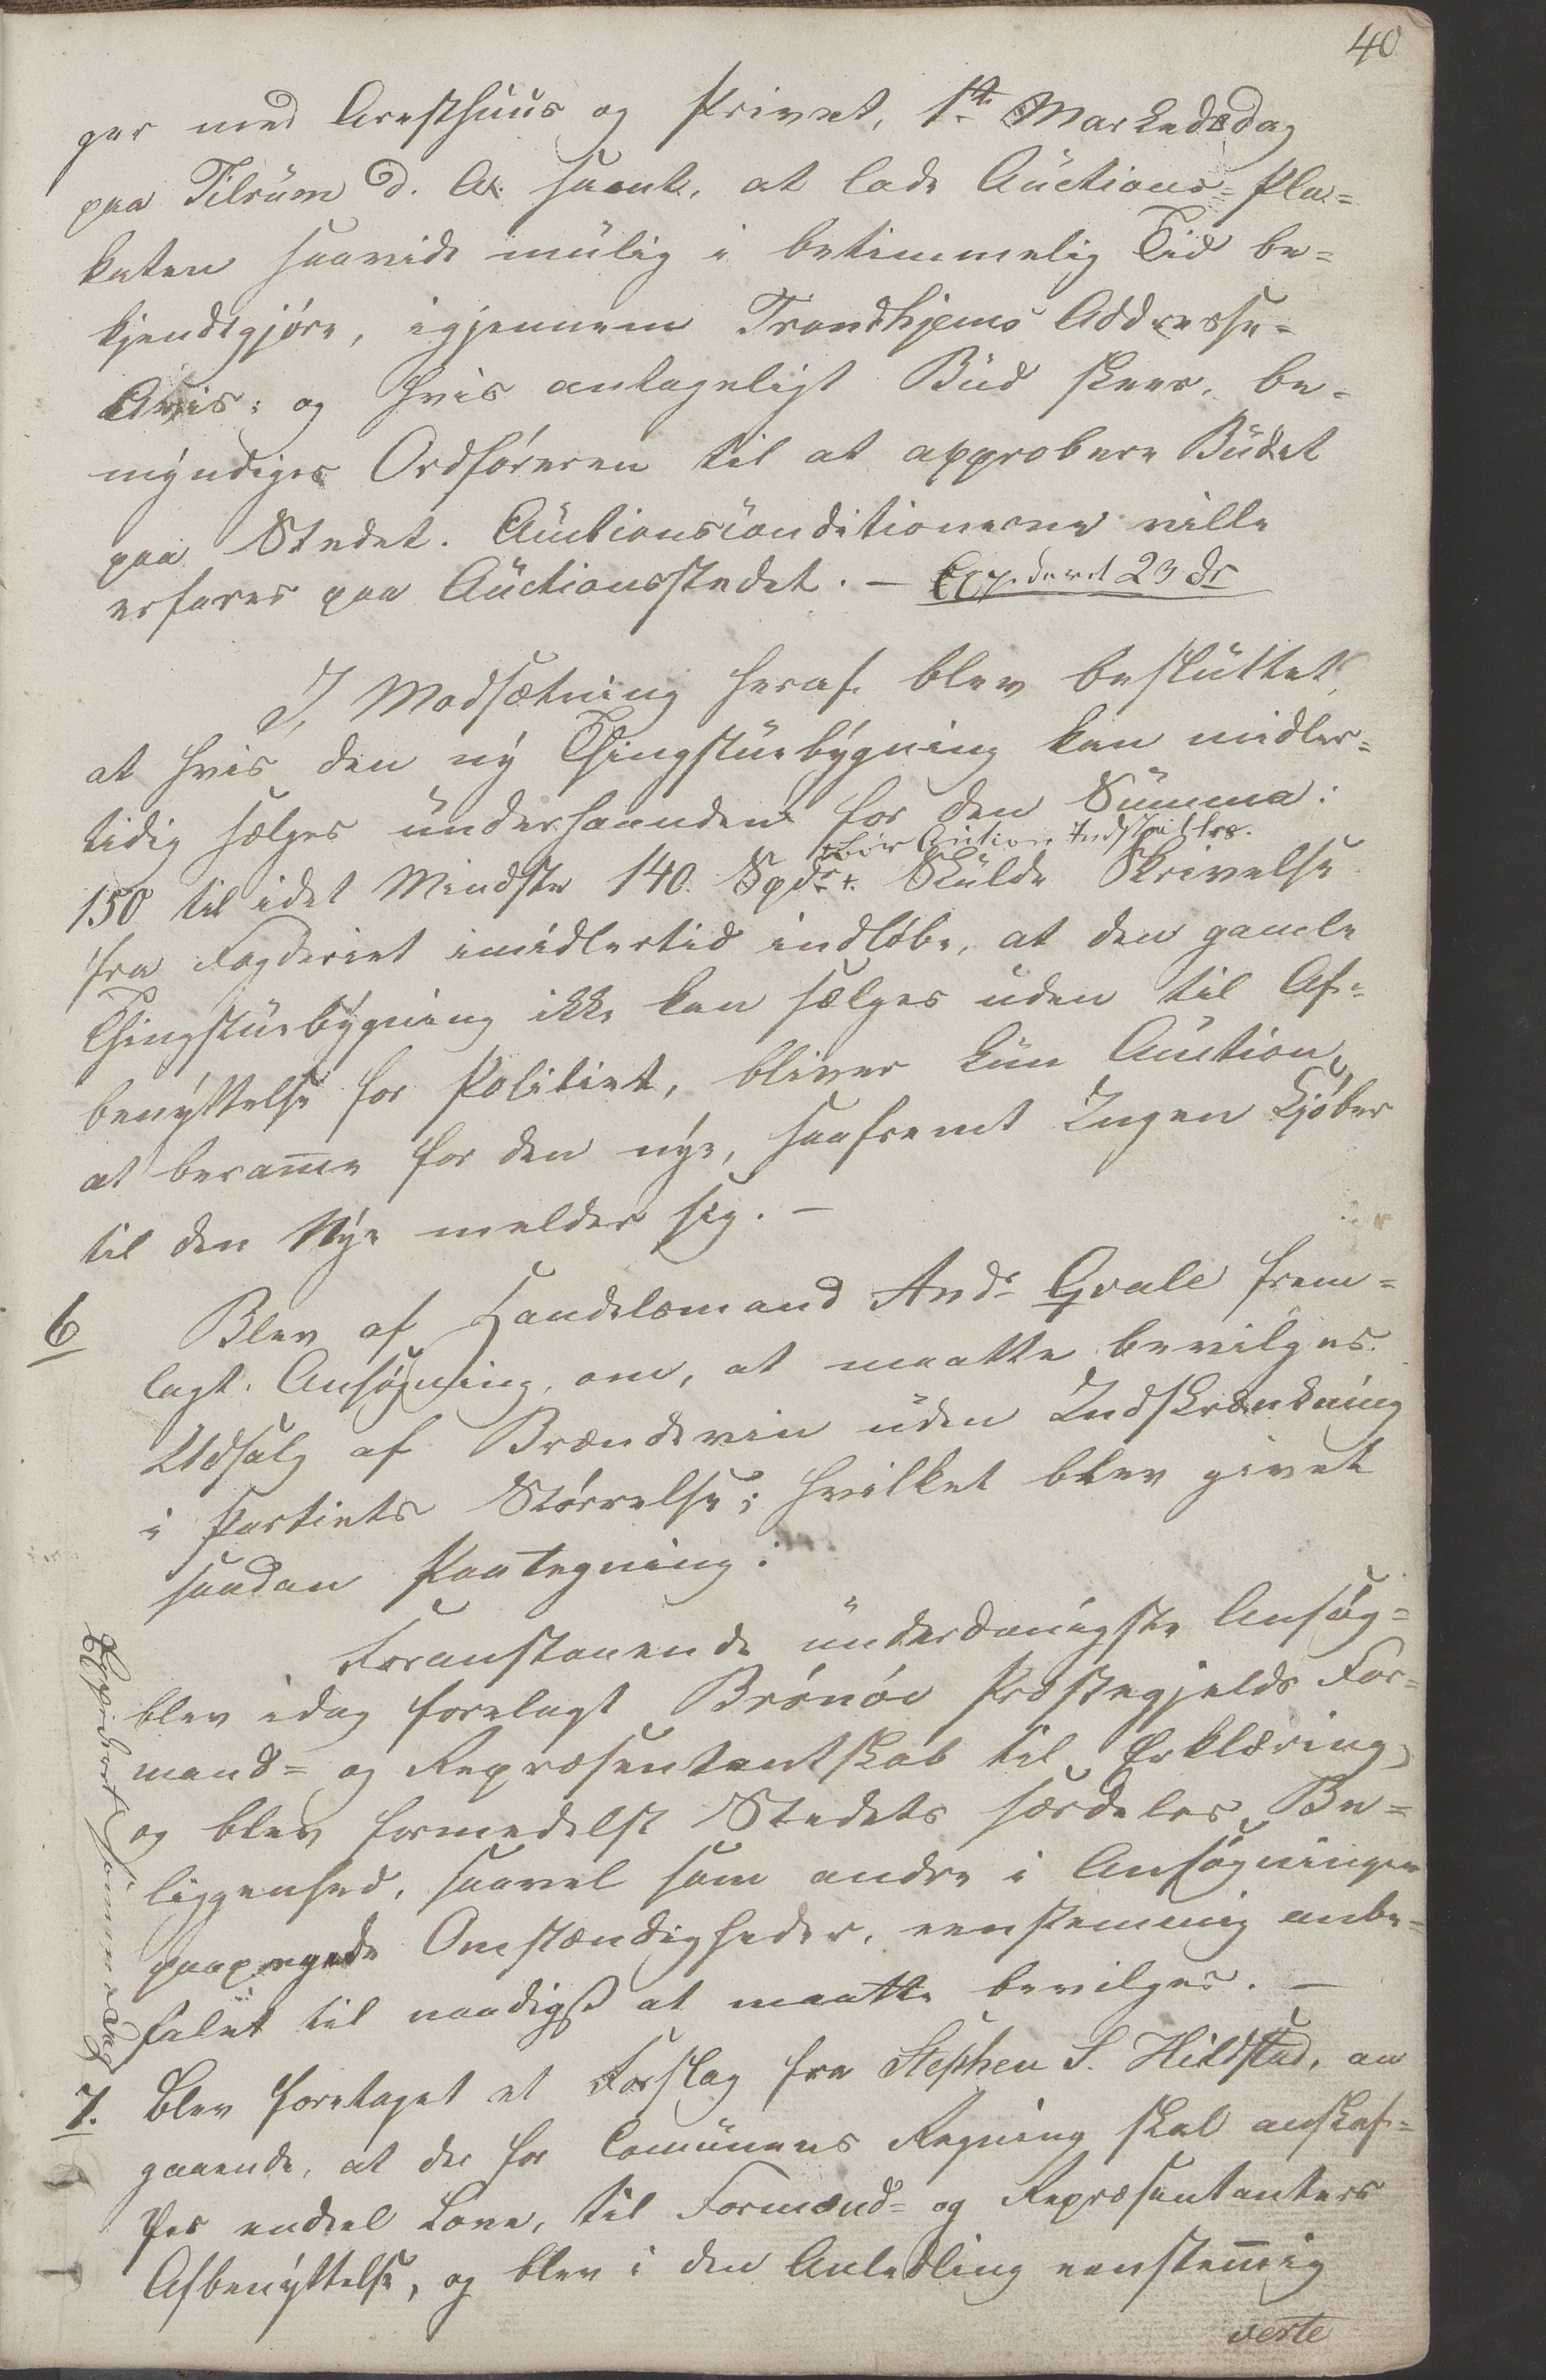 40
ger med Aresthuus og Privet, 1ste Markedsdag
paa Tilrum d. A. samt, at lade Auctions-Pla-
katen saavidt mulig i betimmelig Tid be-
kjendtgjøre, igjennem Trondhjems Addresse-
Avis; og hvis antageligt Bud skeer, be-
myndiges Ordføreren til at approbere Budet
paa Stedet. Auctionsconditionerne ville
erfares paa Auctionsstedet. — Expederet 23 ds
I Modsætning heraf blev besluttet,
at hvis den ny Thingstuebygning kan midler-
tidig sælges underhaanden for den Summa:
+bør Auction Indstilles.
150 til idet Mindste 140. Spdr +. Skulde Skrivelse
fra Fogderiet imidlertid indløbe, at den gamle
Thingstuebygning ikke kan sælges uden til Af-
benyttelse for Politiet, bliver kun Auction,
at berame for den nye, saafremt Ingen Kjøber
til den Nye melder sig. —
6 Blev af Handelsmand Andr Qvale frem-
lagt Ansøgning, om, at maatte bevilges
Udsalg af Brændeviin uden Indskrænkning
i Partiets Størrelse; hvilket blev givet
saadan Paategning:
Foranstaaende underdanigste Ansøg-
blev idag forelagt Brønøe Præstegjelds For-
mand- og Repræsentantskab til Erklæring,
og blev formedelst Stedets særdeles Be-
liggenhed, saavel som andre i Ansøgningen
paapegede Omstændigheder, eenstemmig anbe-
falet til naadigst at maatte bevilges. —
Expederet samme Dag
7. Blev foretaget et Forslag fra Stephen S. Hildstad, an
gaaende, at der for Comünens Regning skal anskaf-
fes endeel Love, til Formænd- og Repræsentanters
Afbenyttelse, og blev i den Anledling eenstemig
verte